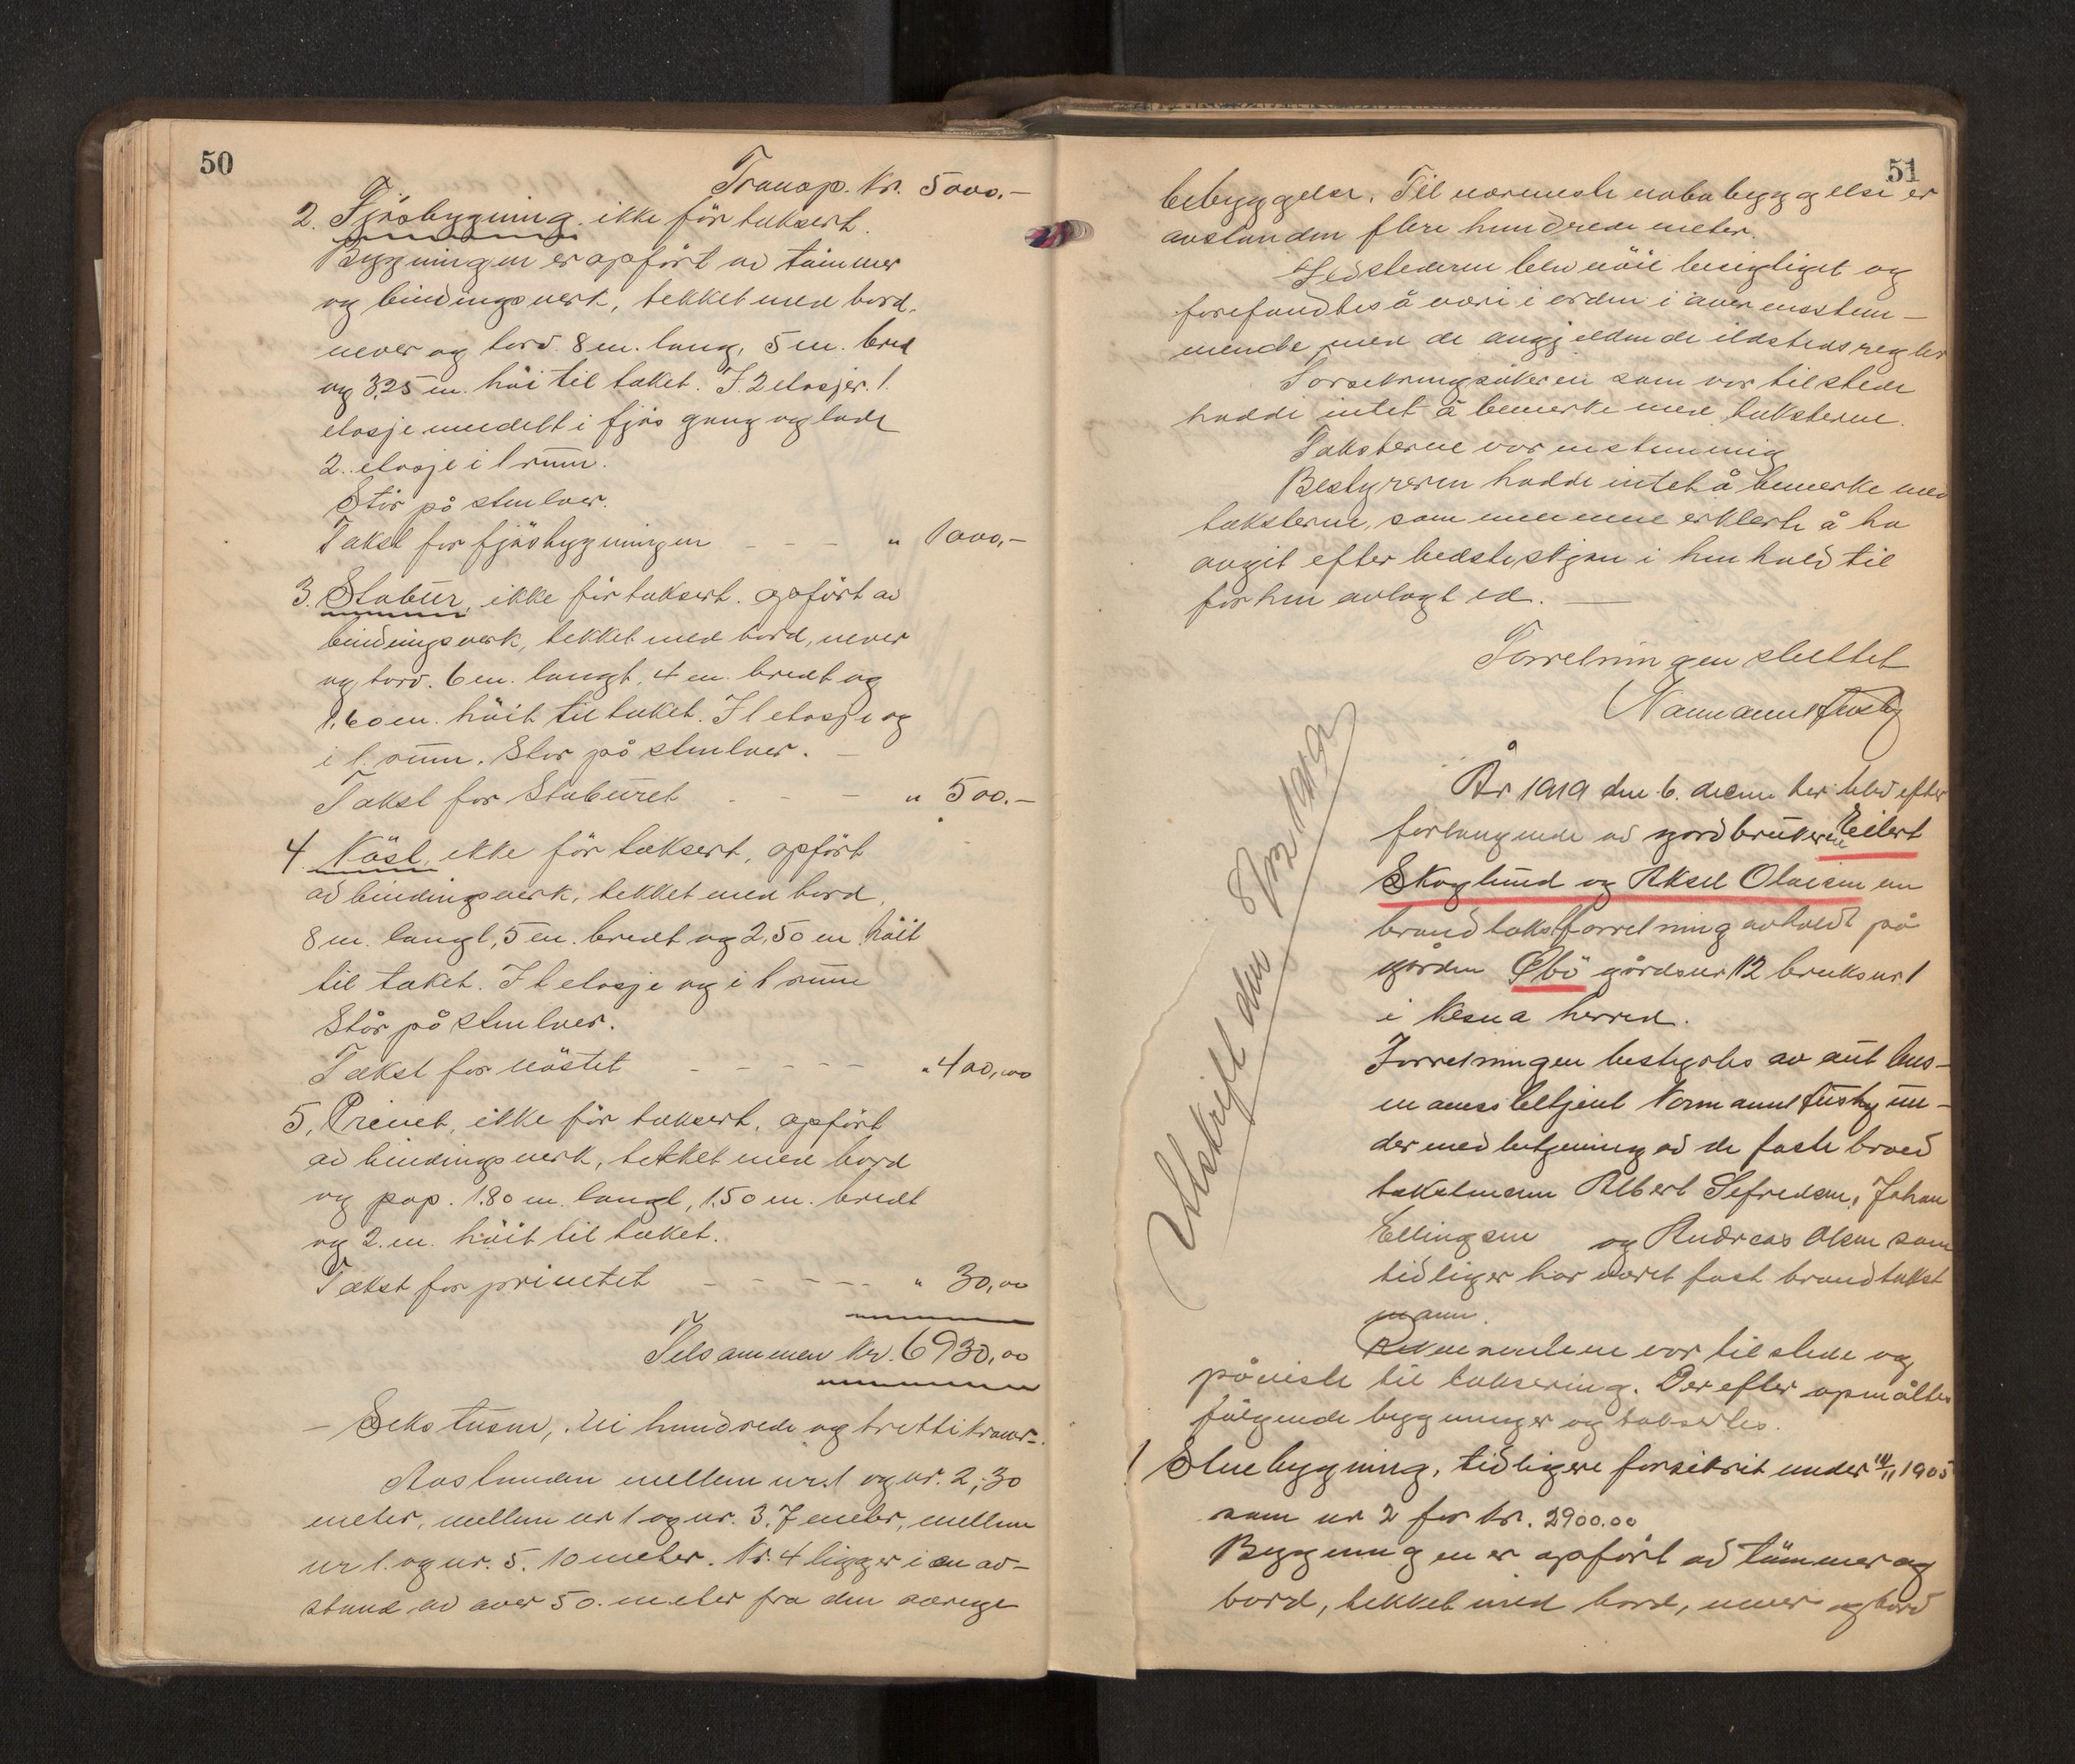 50
Transp. kr. 5000.-
2. Fjösbygning, ikke för taksert.
Bygningen er opfört av tömmer
og bindingsverk, tekket med bord,
never og torv. 8 m. lang, 5 m. bred
og 3,25 m. höi til taket. I 2 etasjer. 1.
etasje inndelt i fjös gang og lade
2. etasje i 1 rum.
Står på stolper.
Takst for fjösbygningen - - - " 1000,-
3. Stabur, ikke för taksert. opfört av
bindingsverk, tekket med bord, never
og torv. 6 m. langt, 4 m. bredt og
1,60 m. höit til taket. I 1 etasje og
i 1. rum. Står på stolper. -
Takst for Staburet - - - " 500.-
4. Nöst, ikke för taksert, opfört
av bindingsverk, tekket med bord,
8 m. langt, 5 m. bredt og 2,50 m. höit
til taket. I 1 etasje og i 1 rum
Står på stolper.
Takst for nöstet - - - - - " 400,00
5. Privet, ikke för taksert, opfört
av bindingsverk, tekket med bord
og pap. 1.80 m. langt, 1.50 m. bredt
og 2. m. höit til taket.
Takst for privetet - - - - - " 30,00
Tilsammen kr. 6930,00
- Seks tusen, ni hundrede og tretti kroner -
Avstanden mellem nr. 1 og nr. 2, 30
meter, mellem nr 1 og nr. 3. 7 meter, mellem
nr 1. og nr. 5. 10 meter. Nr. 4 ligger i en av-
stand av over 50. meter fra den övrige
51
bebyggelse. Til nærmeste nabobebyggelse er
avstanden flere hundrede meter.
Ildstederne blev nöie besigtiget og
forefandtes å være i orden i overensstem-
mende med de angjeldende ildstedsregler
Forsikringssökeren som var tilstede
hadde intet å bemerke med taksterne.
Taksterne var enstemmig
Bestyreren hadde intet å bemerke med
taksterne, som mennene erklærte å ha
avgit efter bedste skjön i henhold til
förhen avlagt ed. -
Forretningen sluttet
Normann Husby
Utskrift den 8/12 1919
År 1919 den 6. december blev efter
forlangende av gårdbrukerne Eilert
Skoglund og Aksel Olaisen en
brandtakstforretning avholdt på
gården Öbö gårdsnr 12 bruksnr. 1
i Nesna herred.
Forretningen bestyrtes av aut lens-
mannsbetjent Normann Husby un-
der medbetjening av de faste brand
takstmenn Albert Sefredsen, Johan
Ellingsen og Andreas Olsen som
tidliger har været fast brandtakst
mann.
Rekvirentene var tilstede og
påviste til taksering. Derefter opmåltes
fölgende bygninger og taksertes.
1 Stuebygning, tidligere forsikrit under 14/11 1905
som nr 2 for kr. 2900.00
Bygningen er opfört av tömmer og
bord, tekket med bord, never og torv